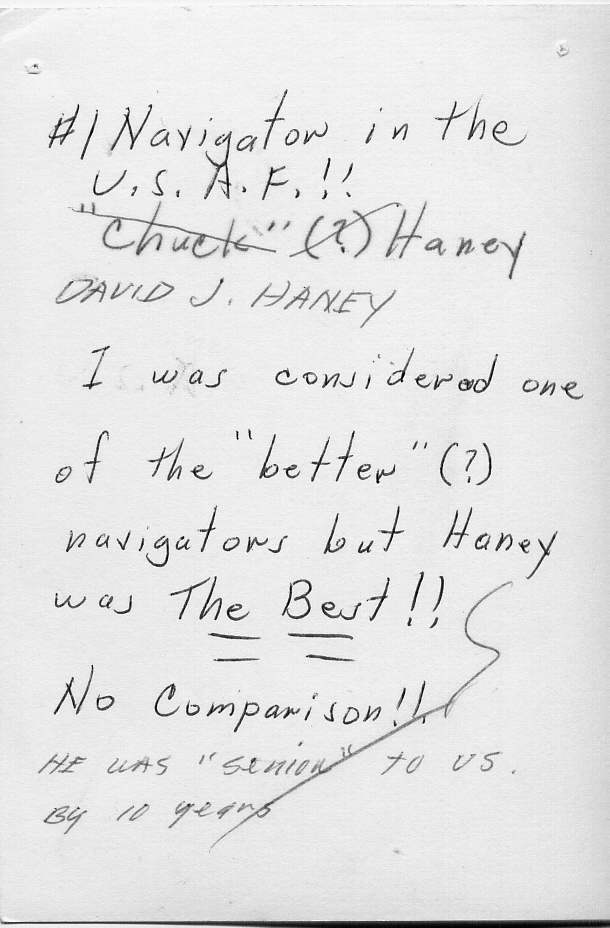 #1 Navigator in the
U.S. A.F.!!
"Chuck" (?) Haney
DAVID J. HANEY
I was considered one
of the "better" (?)
navigators but Haney
was The Best!!
No Comparison!!
HE WAS "senior" to US.
By 10 years